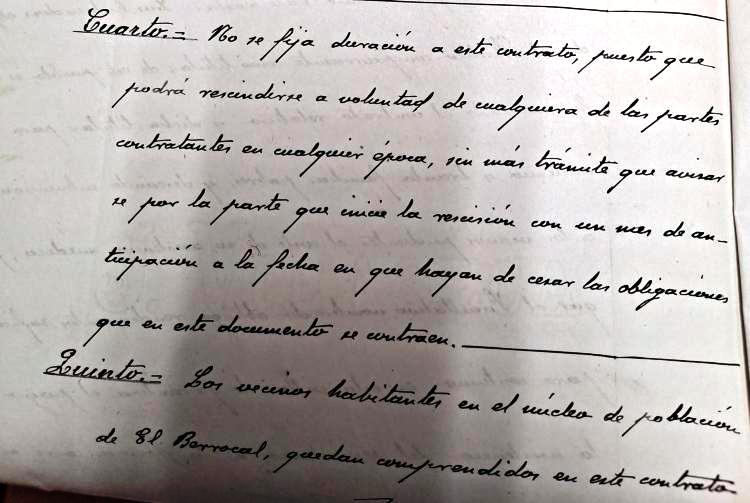 Cuarto.= No se fija duración a este contrato, puesto que
podrá rescindirse a voluntad de cualquiera de las partes
contratantes en cualquier época, sin más trámite que avisar
se por la parte que inicie la rescisión con un mes de an-
ticipación a la fecha en que hayan de cesar las obligaciones
que en este documento se contraen.
Quinto.= Los vecinos habitantes en el núcleo de población
de El Berrocal, quedan comprendidos en este contrato